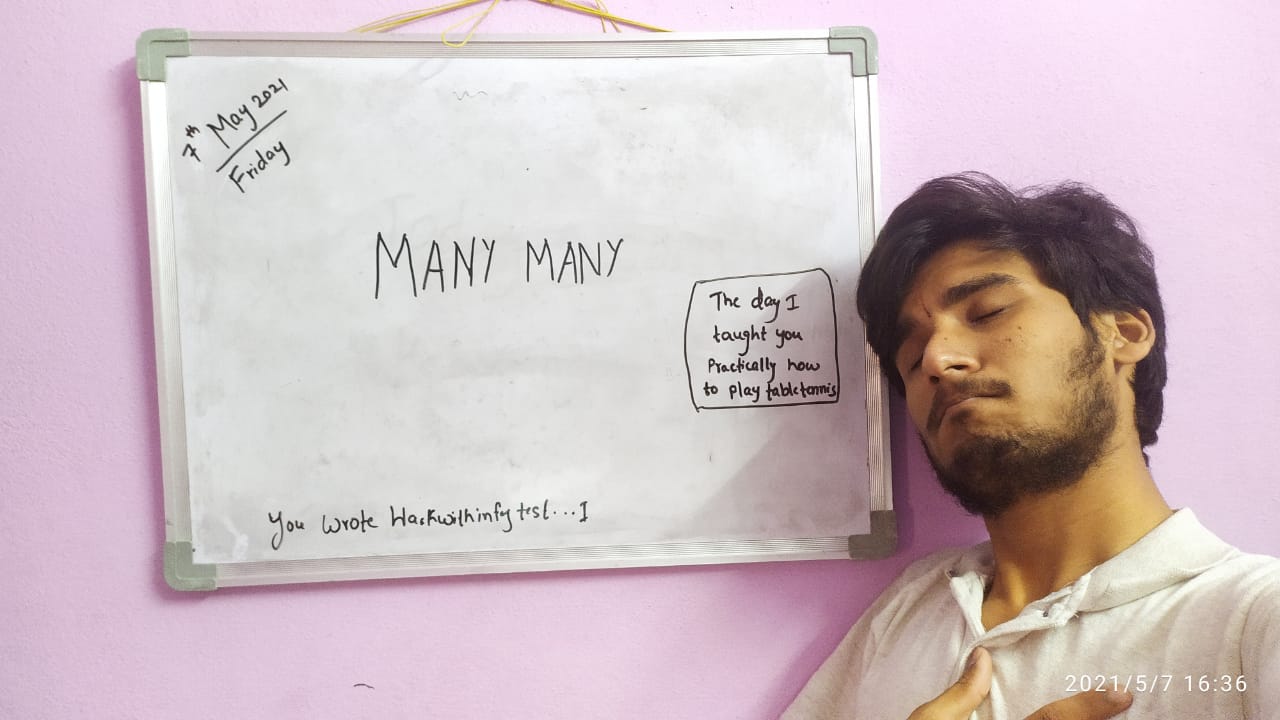 7th May 2021
Friday
MANY MANY
The day I
taught you
Practically how
to play tabletennis
You wrote Hackwithinfy test...I
2021/5/7 16:36